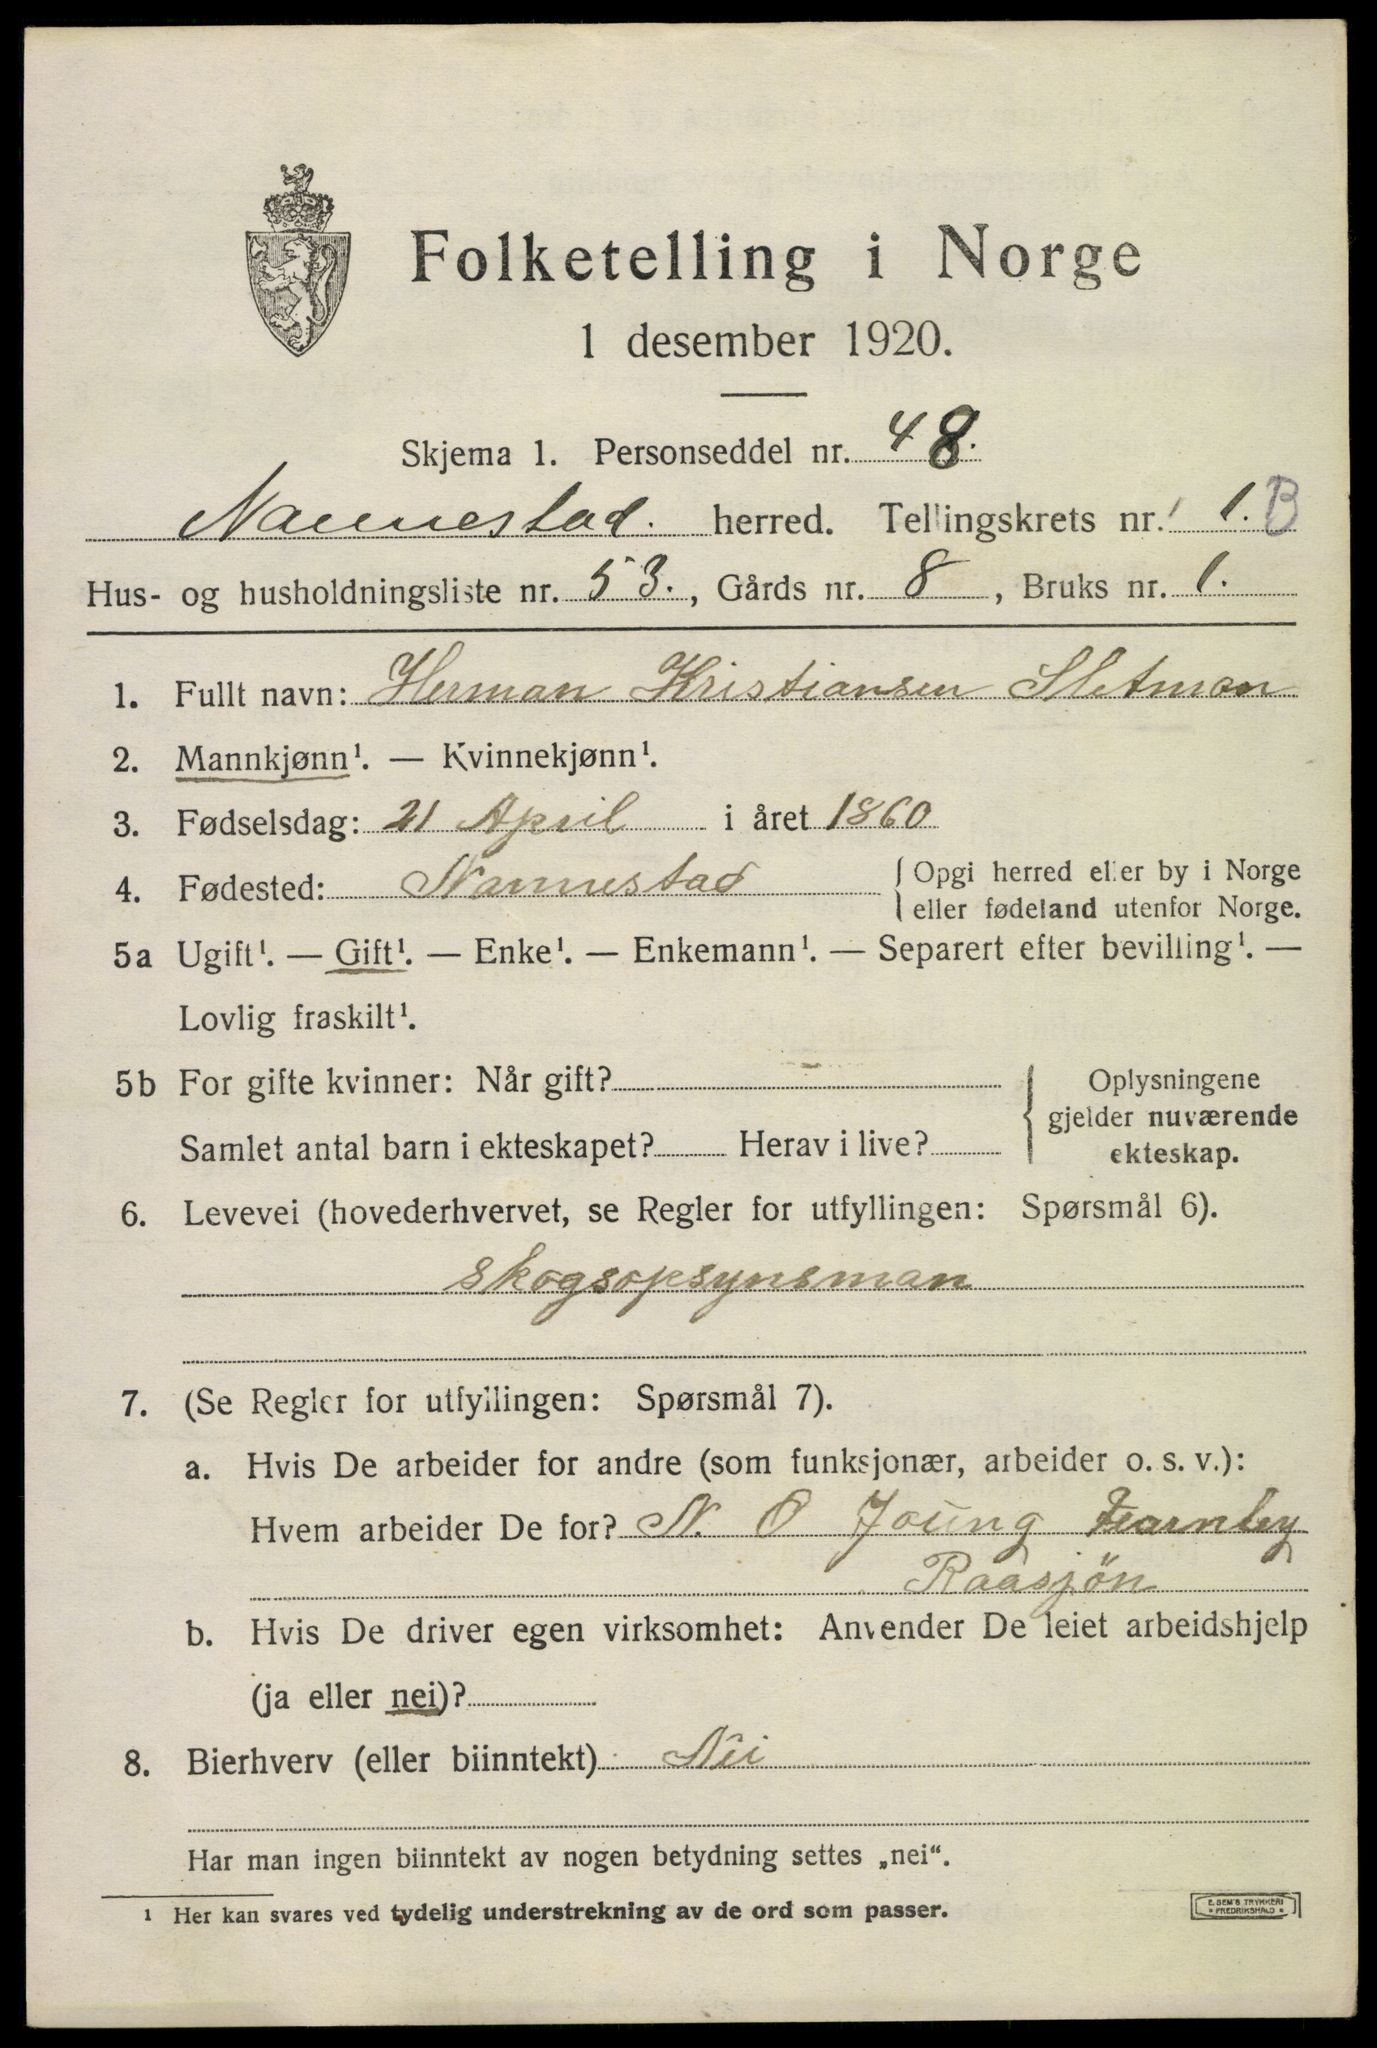 Folketelling i Norge
1 desember 1920.
Skjema 1. Personseddel nr. 48.
Nannestad. herred. Tellingskrets nr. 1. B
Hus- og husholdningsliste nr. 53., Gårds nr. 8, Bruks nr. 1.
1. Fullt navn: Herman Kristiansen Sletman
2. Mannkjønn¹. — Kvinnekjønn¹.
3. Fødselsdag: 21 April i året 1860
4. Fødested: Nannestad { Opgi herred eller by i Norge
eller fødeland utenfor Norge.
5a Ugift¹. — Gift¹. — Enke¹. — Enkemann¹. — Separert efter bevilling¹. —
Lovlig fraskilt¹.
5b For gifte kvinner: Når gift?
Samlet antal barn i ekteskapet? Herav i live?
{ Oplysningene
gjelder nuværende
ekteskap.
6. Levevei (hovederhvervet, se Regler for utfyllingen: Spørsmål 6).
skogsopsynsman
7. (Se Regler for utfyllingen: Spørsmål 7).
a. Hvis De arbeider for andre (som funksjonær, arbeider o. s. v.):
Hvem arbeider De for? N. O Joung Fearnley
Raasjön
b. Hvis De driver egen virksomhet: Anvender De leiet arbeidshjelp
(ja eller nei)?
8. Bierhverv (eller biinntekt) Nei
Har man ingen biinntekt av nogen betydning settes „nei“.
¹ Her kan svares ved tydelig understrekning av de ord som passer.
E. SEM'S TRYKKERI
FREDRIKSHALD